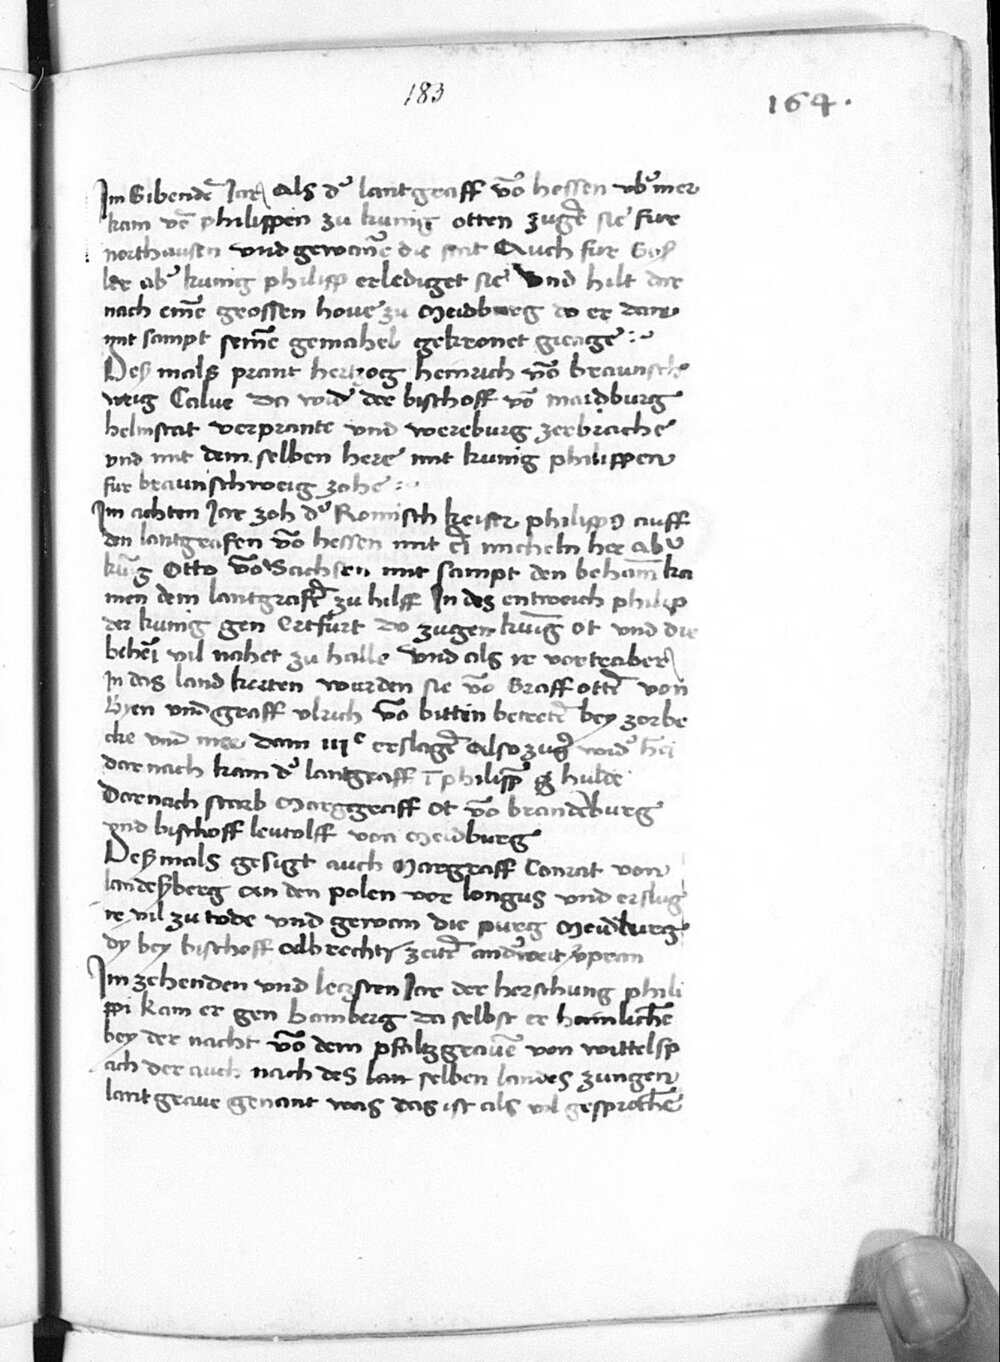 183
164.
Im Sibendē Jar Als dˀ lantgraff võ hessen vbˀ mer
kam vō philippen zu kunig otten zugē sie fure
northausen vnd gewanē die stat Auch fur Gos
ler abˀ kunig philipp erlediget sie Vnd hilt dar
nach eine grossen houe zu Meidburg do er dann
mit sampt seinē gemahel gekronet gienge
Deß mals prant hertzog heinrich võ braunsch
weig Calue Da widˀ der bischoff võ maidburg
helmstat verprante vnd wereburg zerbrache
vnd mit dem selben here mit kunig philippen
fur braunschweig zohe
Im achten Jar zoh dˀ Romisch keiser philippꝯ auff
den lantgrafen võ hessen mit eī micheln her abˀ
kūg Otto võ Sachsen mit sampt den beham̄ ka
men dem lantgrafē zu hilff In des entweich philip
der kunig gen Ertfurt do zugen kunig ot vnd die
behēi vil nahet zu halle Vnd als ir vortraber
In das land kerten wurden sie võ Graff ottē von
Byen vnd graff vlrich võ bittin betretē bey zorbe
cke vnd mer dann iiiᶜ erslagē Also zugē widˀ hēi
dar nach kam dˀ lantgraff ī philippꝰ hulde
Darnach starb Marggraff Ot võ brandēburg
vnd bischoff leutolff von Meidburg
Deß mals gesigt auch Margraff Conrat von
landeßberg an den polen vor longus vnd erslug
ir vil zu tode vnd gewan die purg Meidburg
dy bey bischoff Albrechtz zeitē andˀweit vˀpran
Im zehenden vnd leczsten Jar der herschung phili
ppi kam er gen Bamberg da selbst er hainlichē
bey der nacht võ dem pfaltzgrauē von wittelsp
ach der auch nach des lan selben landes zungen
lantgraue genant was das ist als vil gesprochē